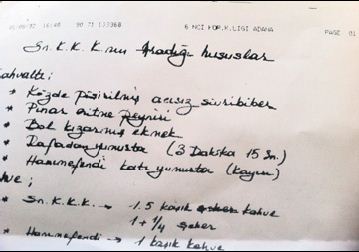 05/06/97 16:40 90 71 133368 6 NCI KOR.K.LIGI ADANA PAGE 01
Sn. K.K.K.nın Aradığı hususlar
ahvaltı ;
* Közde pişirilmiş acısız sivribiber
* Pınar eritme peyniri
* Bol kızarmış ekmek
* Rafadan yumurta (3 Dakika 15 Sn.)
* Hanımefendi katı yumurta (kayısı)
hve ;
* Sn. K.K.K. → 1.5 kaşık kahve
1 + 1/4 şeker
* Hanımefendi → 1 kaşık kahve